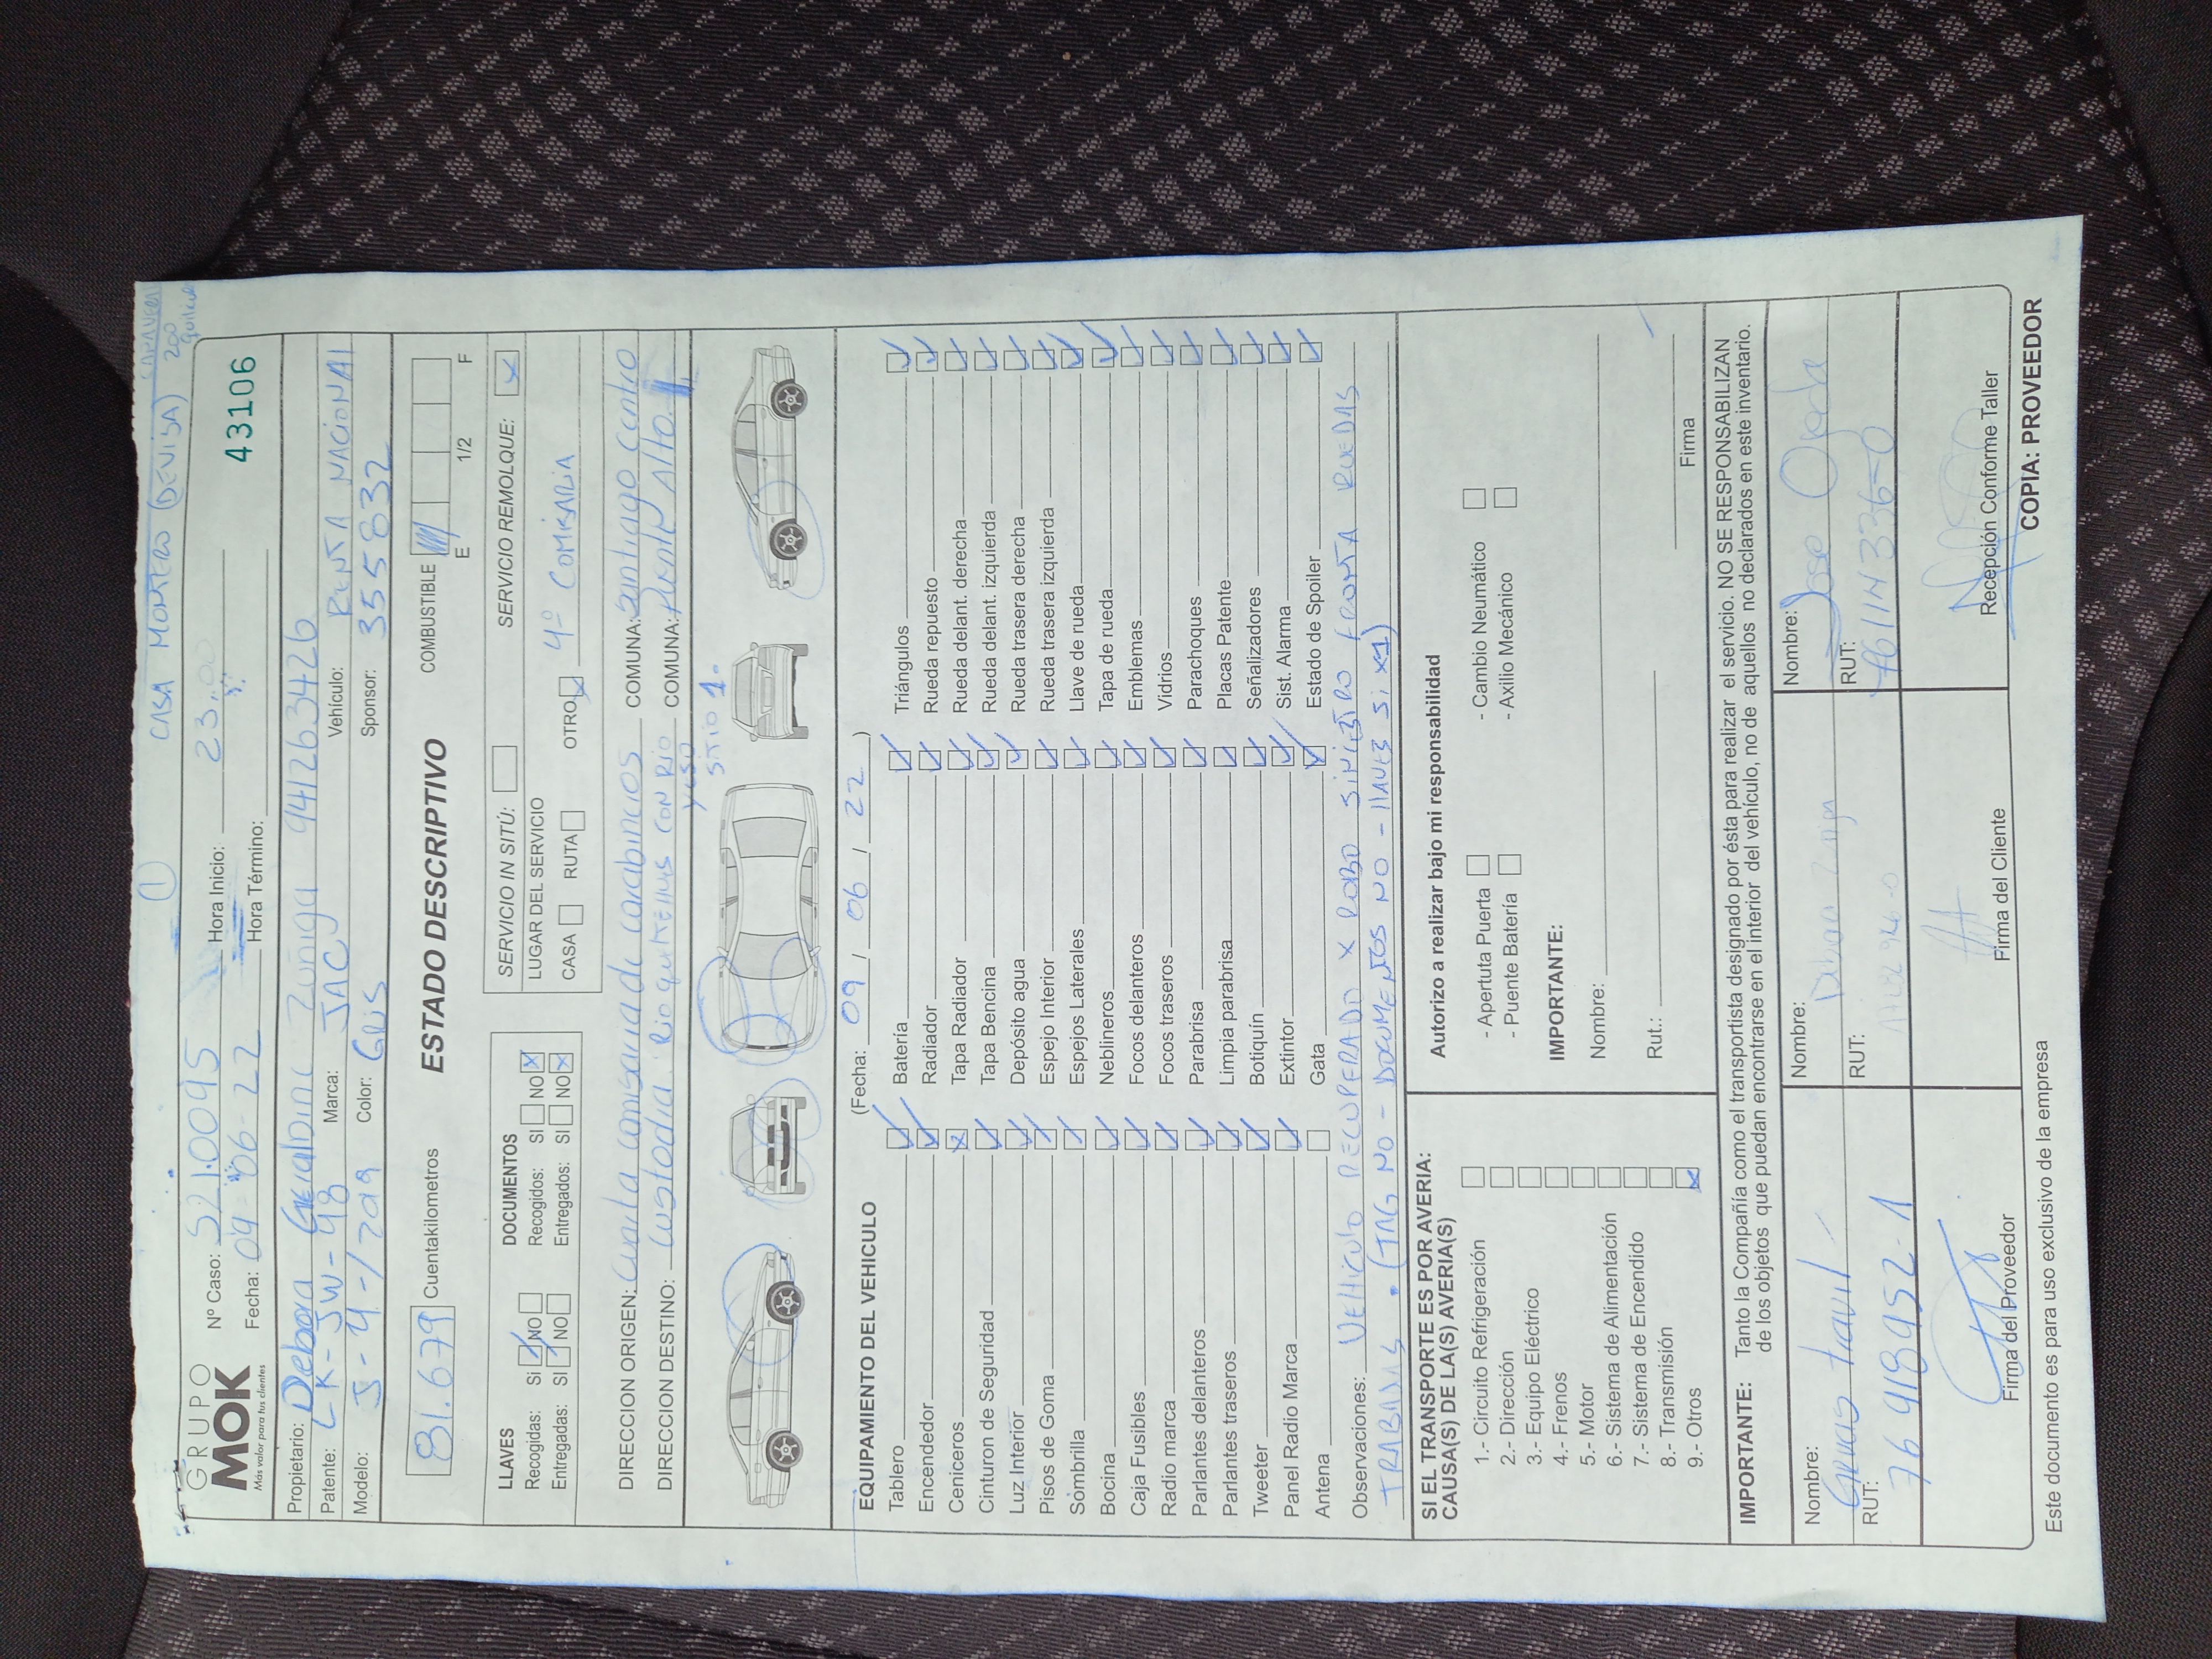 CASA MONTERO (DEVISA)
200
GRUPO
MOK
Más valor para tus clientes
Nº Caso: 5210095 Hora Inicio: 23:00
43106
Fecha: 09-06-22 Hora Término:
Propietario: Debora Zuñiga 941263426
Patente: LK-JW-98 Marca: JAC Vehículo: RENTA NACIONAL
Modelo: J-4-/2019 Color: Gris Sponsor: 355832
81.679 Cuentakilometros
ESTADO DESCRIPTIVO
COMBUSTIBLE
E 1/2 F
LLAVES
Recogidas: Si NO
Entregadas: SI NO
DOCUMENTOS
Recogidos: SI NO
Entregados: SI NO
SERVICIO IN SITÚ:
SERVICIO REMOLQUE:
LUGAR DEL SERVICIO
CASA RUTA OTRO 4º COMISARIA
DIRECCION ORIGEN: Cuarta comisaria de carabineros COMUNA: Santiago Centro
DIRECCION DESTINO: Custodia. Rio CON Rio COMUNA: Puente Alto.
yeso
SITIO 1.
EQUIPAMIENTO DEL VEHICULO (Fecha: 09 / 06 / 22 )
Tablero Batería Triángulos
Encendedor Radiador Rueda repuesto
Ceniceros Tapa Radiador Rueda delant. derecha
Cinturon de Seguridad Tapa Bencina Rueda delant. izquierda
Luz Interior Depósito agua Rueda trasera derecha
Pisos de Goma Espejo Interior Rueda trasera izquierda
Sombrilla Espejos Laterales Llave de rueda
Bocina Neblineros Tapa de rueda
Caja Fusibles Focos delanteros Emblemas
Radio marca Focos traseros Vidrios
Parlantes delanteros Parabrisa Parachoques
Parlantes traseros Limpia parabrisa Placas Patente
Tweeter Botiquín Señalizadores
Panel Radio Marca Extintor Sist. Alarma
Antena Gata Estado de Spoiler
Observaciones: VEHICULO RECUPERADO X ROBO SINIESTRO RUEDAS
TRABADAS. (TAG NO - DOCUMENTOS NO - llAVES Si X1)
SI EL TRANSPORTE ES POR AVERIA:
CAUSA(S) DE LA(S) AVERIA(S)
1.- Circuito Refrigeración
2.- Dirección
3.- Equipo Eléctrico
4.- Frenos
5.- Motor
6.- Sistema de Alimentación
7.- Sistema de Encendido
8.- Transmisión
9.- Otros
Autorizo a realizar bajo mi responsabilidad
- Apertuta Puerta - Cambio Neumático
- Puente Batería - Axilio Mecánico
IMPORTANTE:
Nombre:
Rut.: Firma
IMPORTANTE: Tanto la Compañía como el transportista designado por ésta para realizar el servicio. NO SE RESPONSABILIZAN
de los objetos que puedan encontrarse en el interior del vehículo, no de aquellos no declarados en este inventario.
Nombre: Nombre: Debora Zuñiga Nombre: Jose Ojeda
Gruas
RUT: RUT: RUT:
76 418952-1
Firma del Proveedor Firma del Cliente Recepción Conforme Taller
Este documento es para uso exclusivo de la empresa COPIA: PROVEEDOR